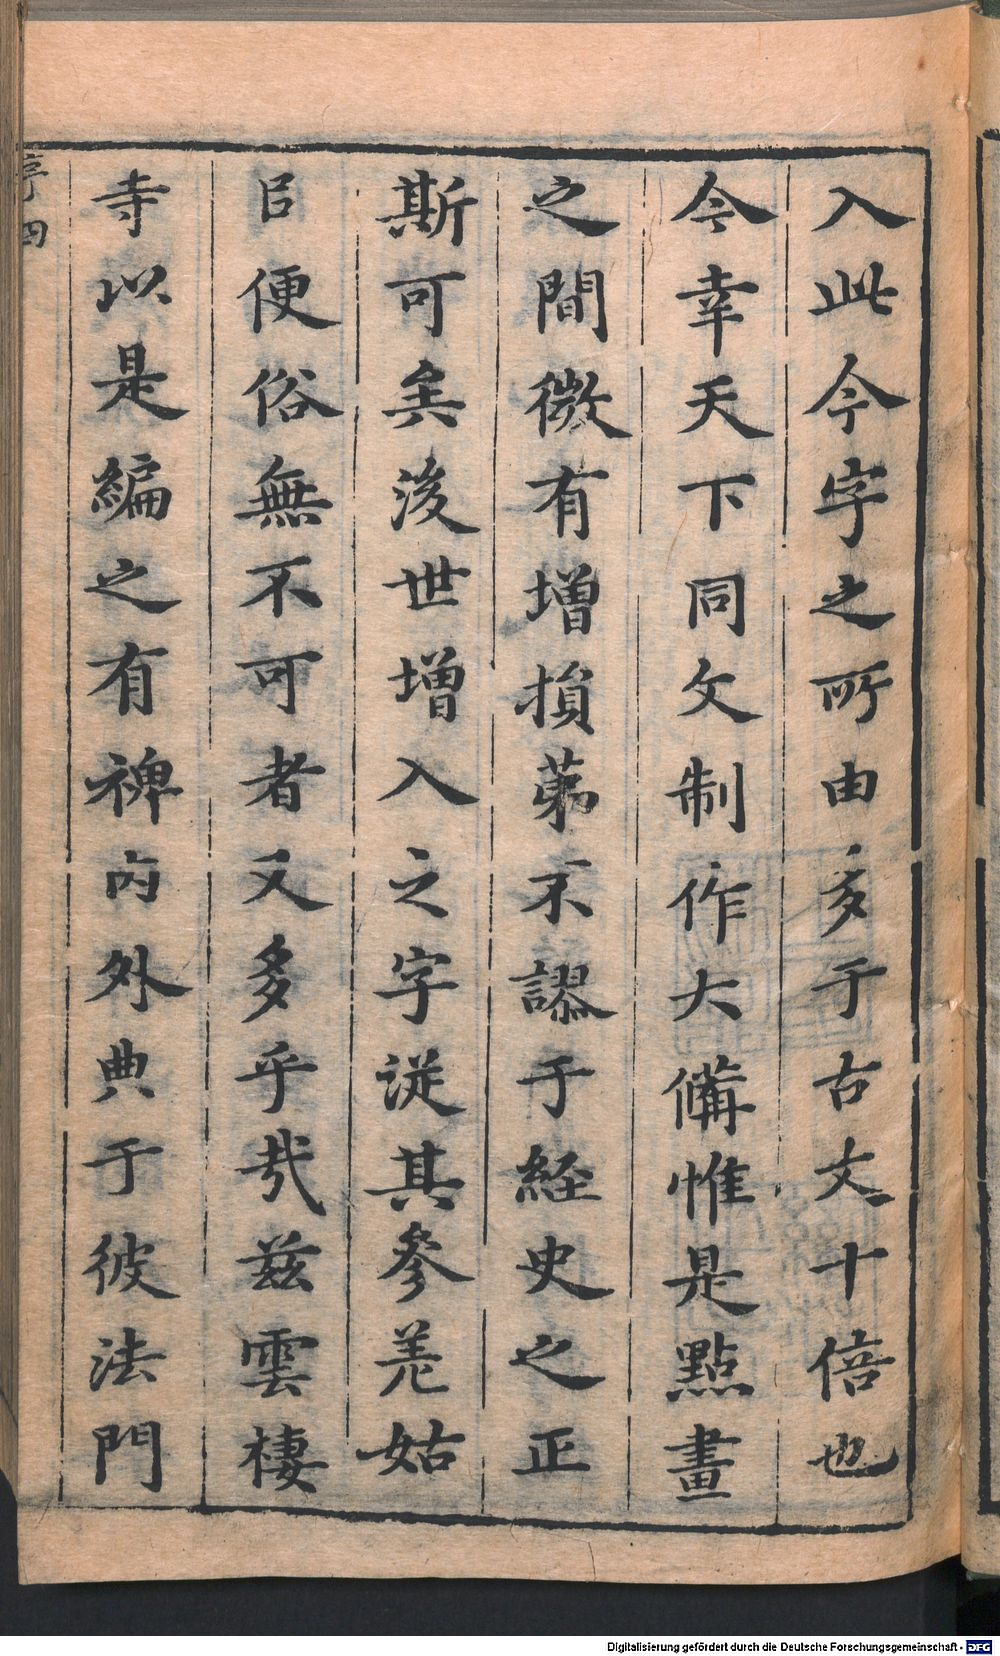 入此今字之所由多于古文十倍也
今幸天下同文制作大備惟是點畫
之間微有增損苐不謬于経史之正
斯可矣後世增入之字従其參差姑
㠯便俗無不可者又多乎㢤茲雲棲
寺以是編之有裨内外典于彼法門
序四
Digitalisierung gefördert durch die Deutsche Forschungsgemeinschaft - DFG